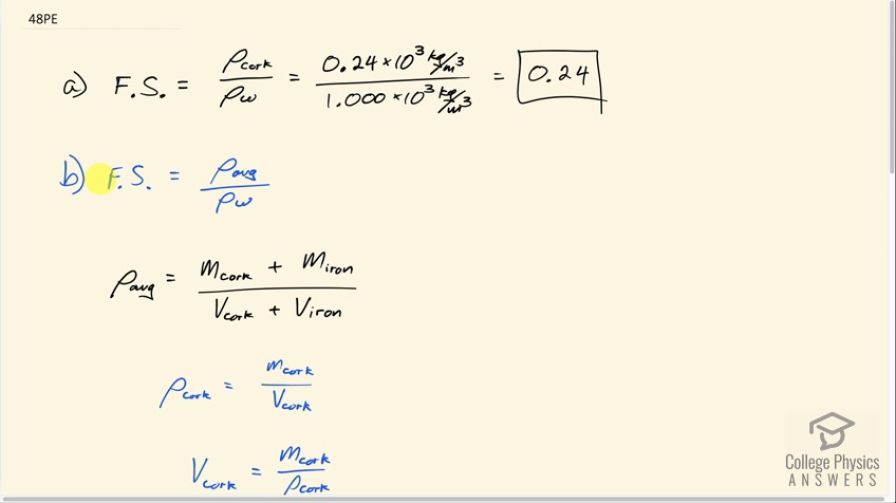 48PE
a) F.S. = ρcork/ρw = 0.24 × 10³ kg/m³ / 1.000 × 10³ kg/m³ = 0.24
b) F.S. = ρavg/ρw
ρavg = mcork + miron / Vcork + Viron
ρcork = mcork/Vcork
Vcork = mcork/ρcork
College Physics
ANSWERS